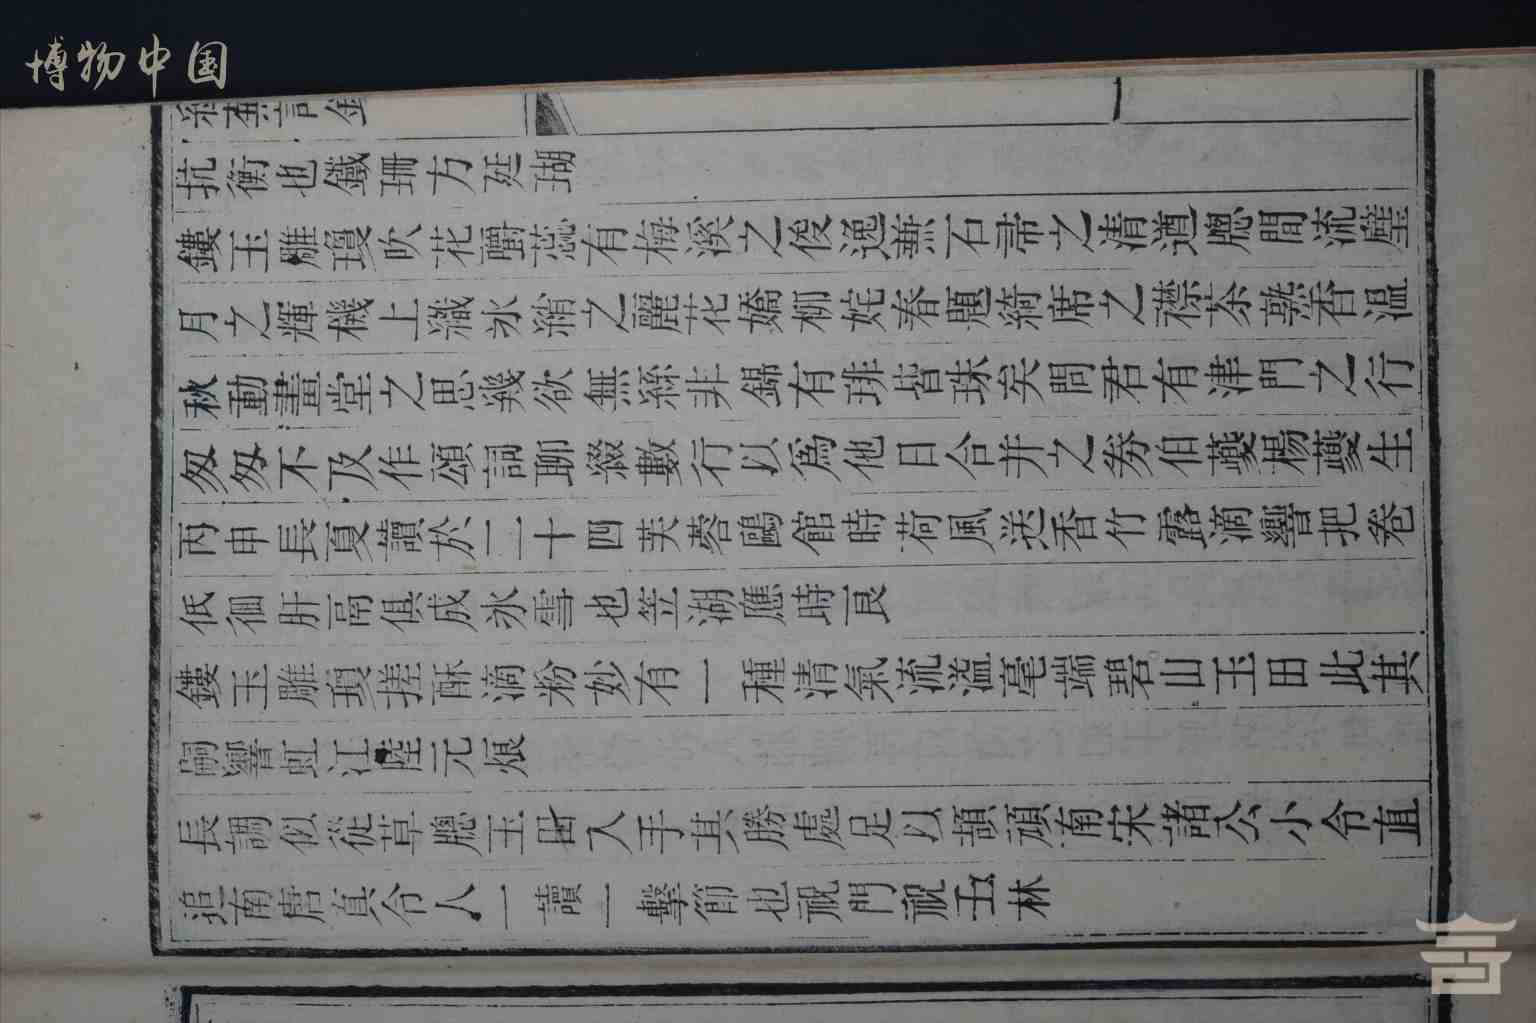 博物中国
抗衡也鐵珊方延瑚
鏤玉雕瓊吹花嚼蕊有梅溪之俊逸兼石帚之清遒牕間流璧
月之輝機上織氷綃之麗花嬌柳姹春題綺席之襟茶熟香温
秋動畫堂之思幾欲無絲非錦有琲皆珠矣問君有津門之行
匆匆不及作頌詞聊綴數行以爲他日合并之券伯夔楊夔生
丙申長夏讀於二十四芙蓉鷗館時荷風送香竹露滴響把卷
低徊肝鬲俱成氷雪也笠湖應時良
鏤玉雕瓊搓酥滴粉妙有一種清氣流溢毫端碧山玉田此其
嗣響虹江陸元烺
長調似從草牕玉田入手其勝處足以頡頏南宋諸公小令直
追南唐真令人一讀一擊節也祝門祝林